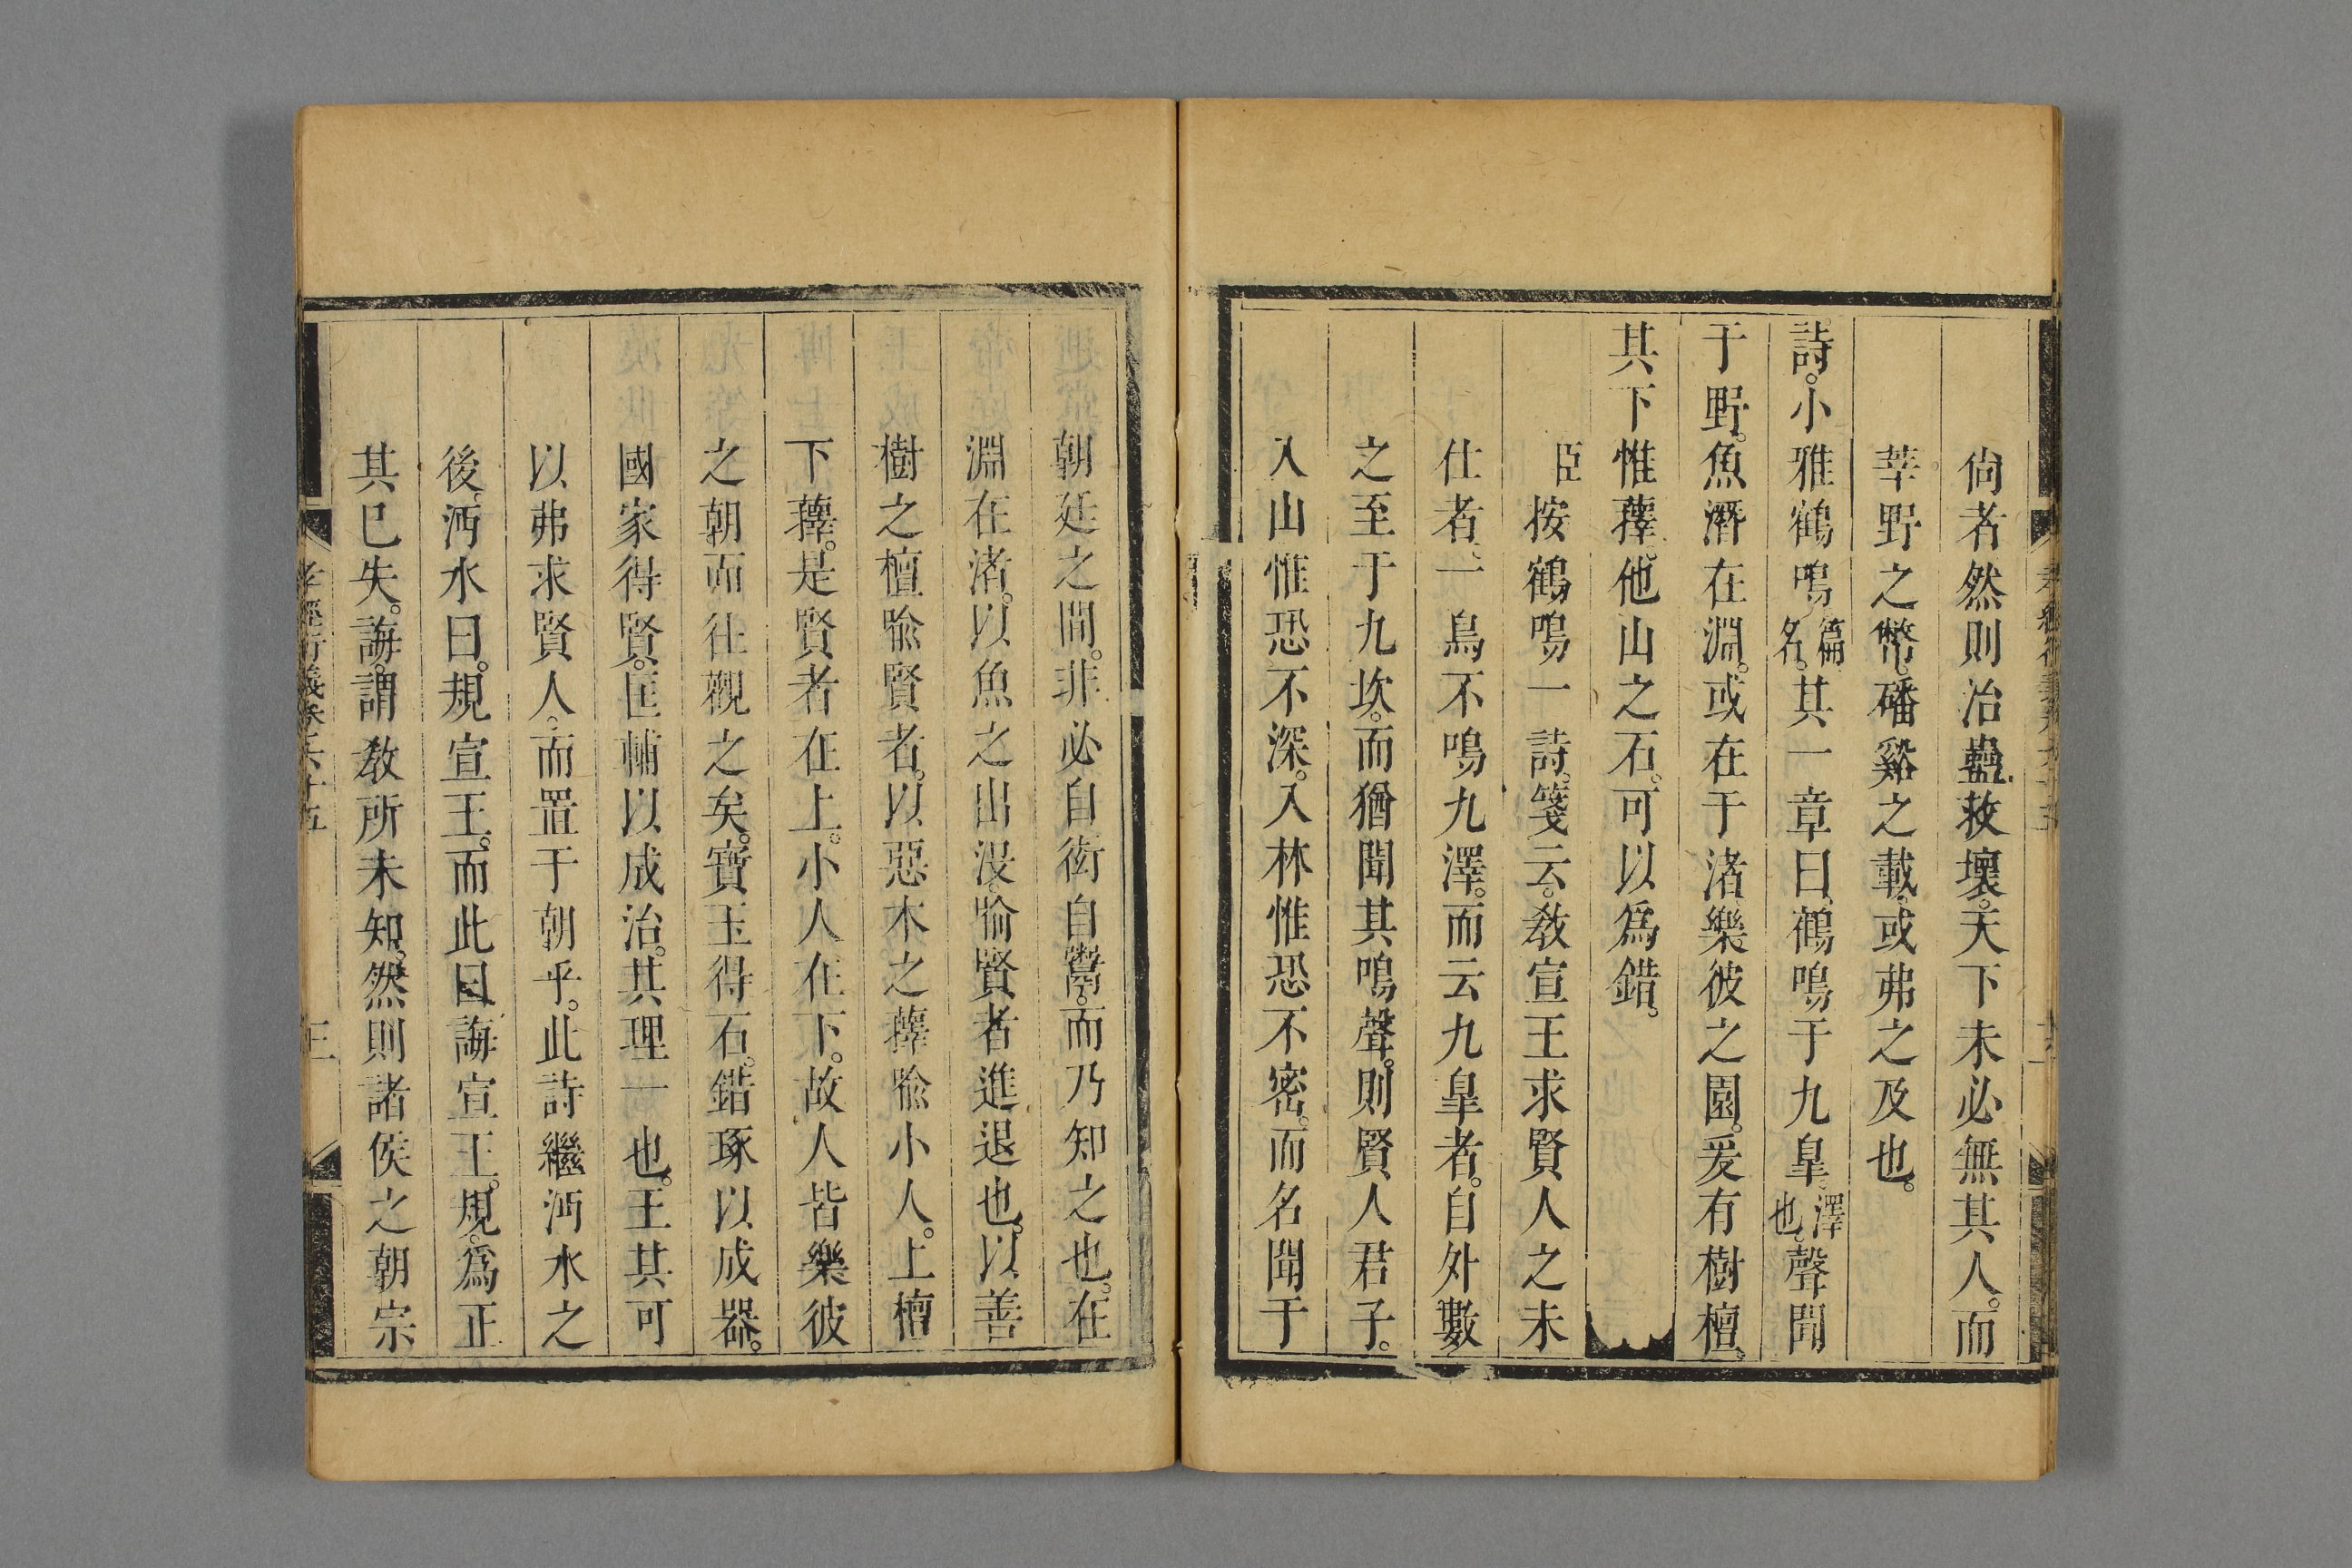 尙者然則治蠱救壞。天下未必無其人。而
莘野之幣。磻谿之載。或弗之及也。
詩。小雅鶴鳴篇名。其一章曰。鶴鳴于九臯。澤也。聲聞
于野。魚潛在淵。或在于渚。樂彼之園。爰有樹檀。
其下惟蘀。他山之石。可以爲錯。
臣按鶴鳴一詩。箋云。教宣王求賢人之未
仕者。一鳥不鳴九澤。而云九臯者。自外數
之至于九坎。而猶聞其鳴聲。則賢人君子。
入山惟恐不深。入林惟恐不密。而名聞于
朝廷之間。非必自衒自鬻。而乃知之也。在
淵在渚。以魚之出没。喻賢者進退也。以善
樹之檀喻賢者。以惡木之蘀喻小人。上檀
下蘀。是賢者在上。小人在下。故人皆樂彼
之朝而往觀之矣。寶玉得石。錯琢以成器。
國家得賢。匡輔以成治。其理一也。王其可
以弗求賢人。而置于朝乎。此詩繼沔水之
後。沔水曰。規宣王。而此曰誨宣王。規。爲正
其已失。誨。謂教所未知。然則諸侯之朝宗
孝經衍義卷六十五
三